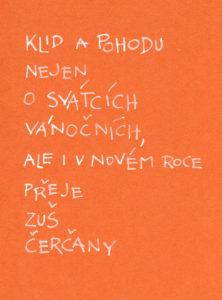 KLID A POHODU
NEJEN
O SVÁTCÍCH
VÁNOČNÍCH,
ALE I V NOVÉM ROCE
PŘEJE
ZUŠ
ČERČANY